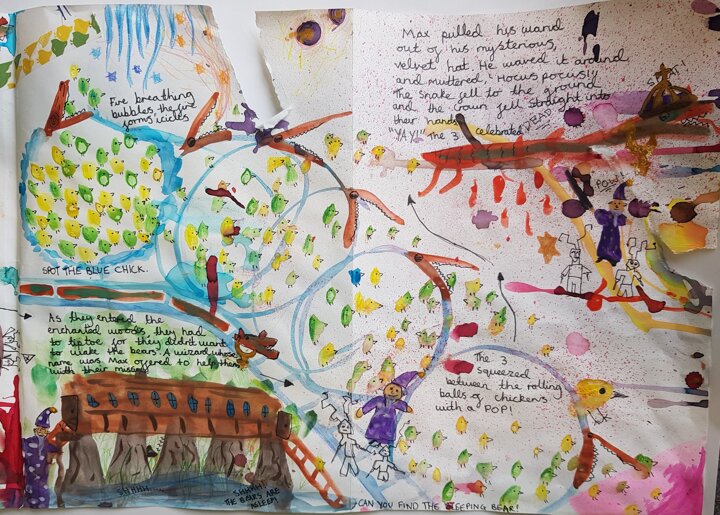 Fire breathing
bubbles, the fire
forms icicles
SPOT THE BLUE CHICK.
As they entered the
enchanted woods, they had
to tiptoe for they didn't want
to wake the bears. A wizard whose
name was Max offered to help them
with their mission
SHHHH
SHHHH!
THE BEARS ARE
ASLEEP
Max pulled his wand
out of his mysterious,
velvet hat. He waved it around
and muttered, "Hocus pocus!"
The snake fell to the ground
DEAD
and the crown fell straight into
their hands
"YAY!" The 3 celebrated
POW!
The 3
squeezed
between the rolling
balls of chickens
with a POP!
CAN YOU FIND THE SLEEPING BEAR?